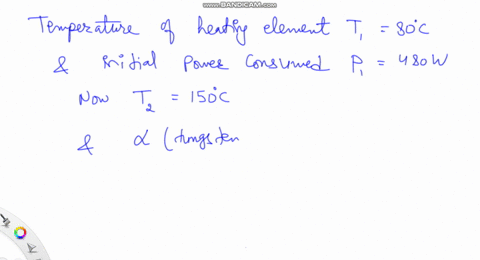 WWW.BANDICAM.COM
Temperature of heating element T₁ = 80°C
& initial Power Consumed P₁ = 480 W
Now T₂ = 150°C
& α (tungsten